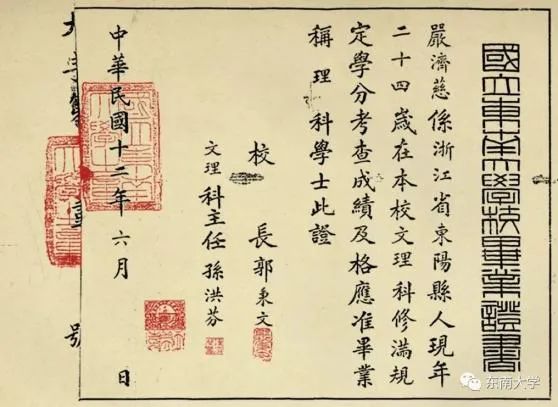 國立東南大學校畢業證書
嚴濟慈係浙江省東陽縣人現年
二十四歲在本校文理科修滿規
定學分考查成績及格應准畢業
稱理科學士此證
校 長郭秉文
文理科主任孫洪芬
中華民國十二年六月 日
號
东南大学